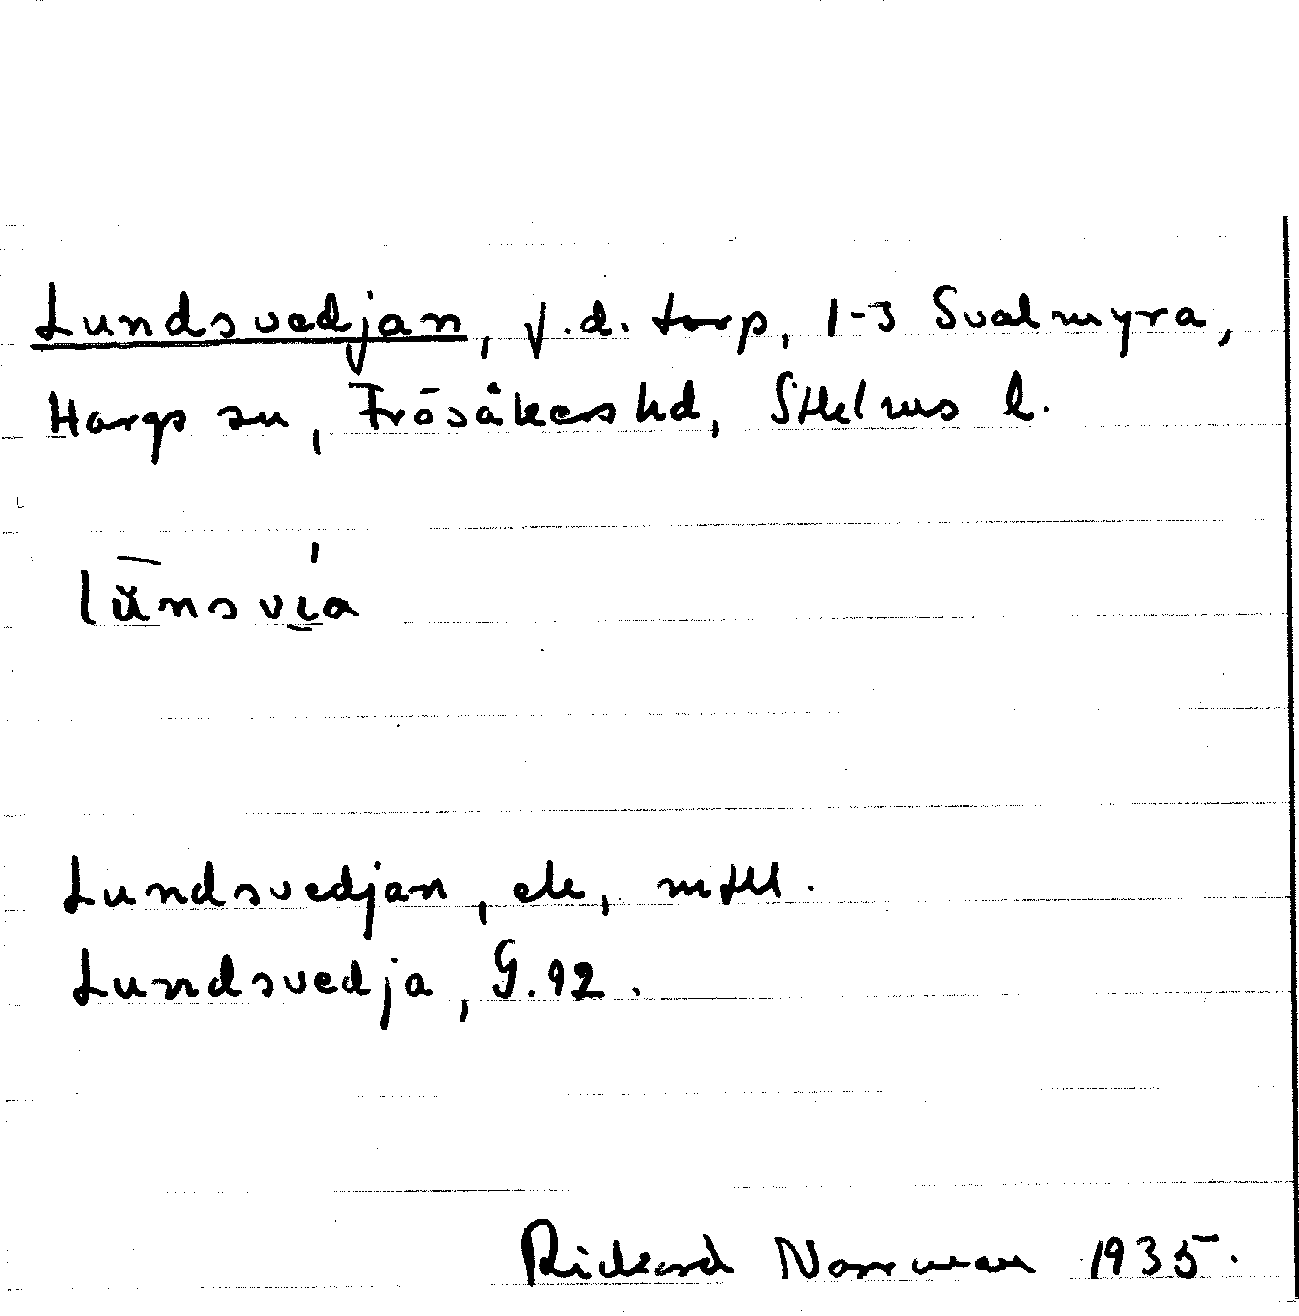 Lundsvedjan, f.d. torp, 1-3 Svalmyra,
Hargs sn, Frösåkers hd, Sthlms l.
lū̆nsvi̠a
Lundsvedjan, ek, mtll.
Lundsvedja, G.92.
Rickard Norrman 1935.